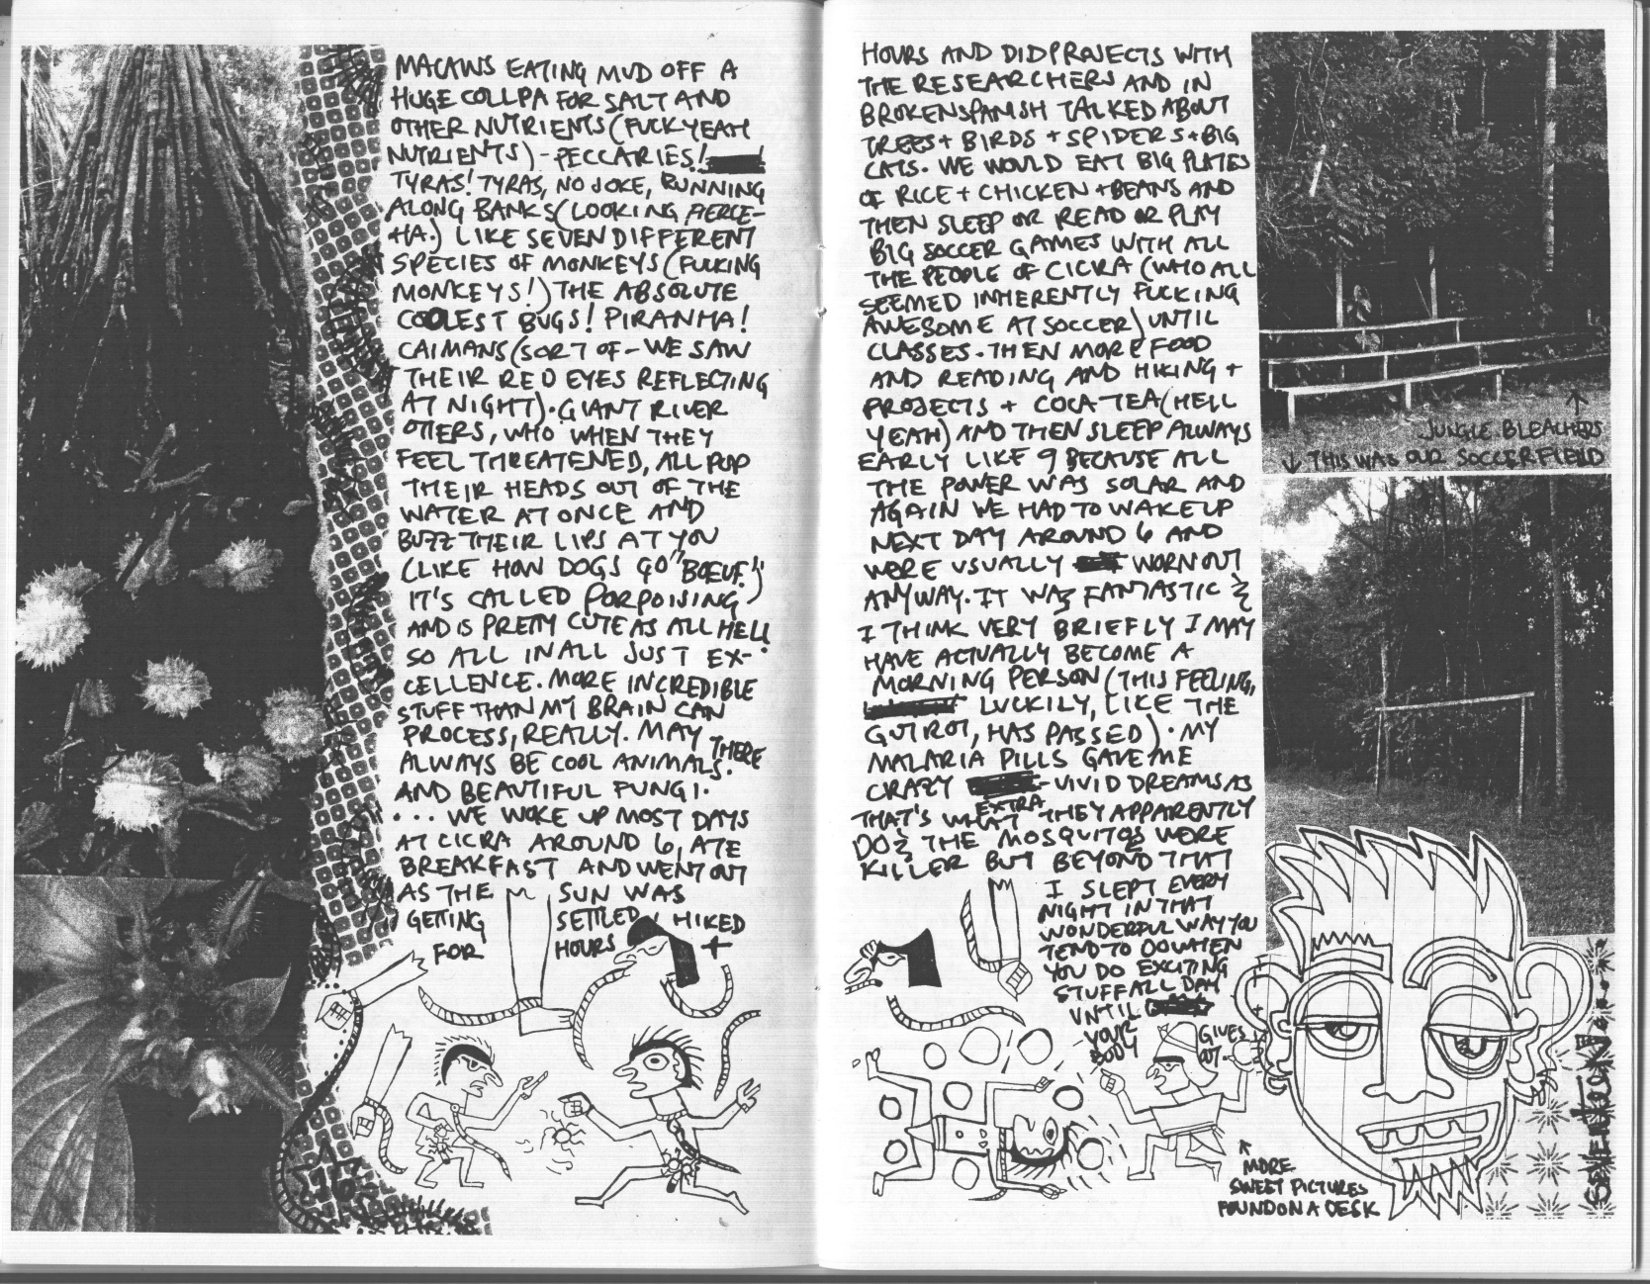 MACAWS EATING MUD OFF A
HUGE COLLPA FOR SALT AND
OTHER NUTRIENTS (FUCK YEAH
NUTRIENTS) - PECCARIES!
TYRAS! TYRAS, NO JOKE, RUNNING
ALONG BANKS (LOOKING FIERCE-
HA.) LIKE SEVEN DIFFERENT
SPECIES OF MONKEYS (FUCKING
MONKEYS!) THE ABSOLUTE
COOLEST BUGS! PIRANHA!
CAIMANS (SORT OF - WE SAW
THEIR RED EYES REFLECTING
AT NIGHT). GIANT RIVER
OTTERS, WHO WHEN THEY
FEEL THREATENED, ALL POP
THEIR HEADS OUT OF THE
WATER AT ONCE AND
BUZZ THEIR LIPS AT YOU
(LIKE HOW DOGS GO "BOEUF.")
IT'S CALLED PORPOISING
AND IS PRETTY CUTE AS ALL HELL.
SO ALL IN ALL JUST EX-
CELLENCE. MORE INCREDIBLE
STUFF THAN MY BRAIN CAN
PROCESS, REALLY. MAY THERE
ALWAYS BE COOL ANIMALS.
AND BEAUTIFUL FUNGI.
... WE WOKE UP MOST DAYS
AT CICRA AROUND 6, ATE
BREAKFAST AND WENT OUT
AS THE SUN WAS
GETTING SETTLED, HIKED
FOR HOURS +
HOURS AND DID PROJECTS WITH
THE RESEARCHERS AND IN
BROKEN SPANISH TALKED ABOUT
TREES + BIRDS + SPIDERS + BIG
CATS. WE WOULD EAT BIG PLATES
OF RICE + CHICKEN + BEANS AND
THEN SLEEP OR READ OR PLAY
BIG SOCCER GAMES WITH ALL
THE PEOPLE OF CICRA (WHO ALL
SEEMED INHERENTLY FUCKING
AWESOME AT SOCCER) UNTIL
CLASSES. THEN MORE FOOD
AND READING AND HIKING +
PROJECTS + COCA TEA (HELL
YEAH) AND THEN SLEEP ALWAYS
EARLY LIKE 9 BECAUSE ALL
THE POWER WAS SOLAR AND
AGAIN WE HAD TO WAKE UP
NEXT DAY AROUND 6 AND
WERE USUALLY WORN OUT
ANYWAY. IT WAS FANTASTIC &
I THINK VERY BRIEFLY I MAY
HAVE ACTUALLY BECOME A
MORNING PERSON (THIS FEELING,
LUCKILY, LIKE THE
GUT ROT, HAS PASSED). MY
MALARIA PILLS GAVE ME
CRAZY EXTRA-VIVID DREAMS AS
THAT'S WHAT THEY APPARENTLY
DO & THE MOSQUITOS WERE
KILLER BUT BEYOND THAT
I SLEPT EVERY
NIGHT IN THAT
WONDERFUL WAY YOU
TEND TO DO WHEN
YOU DO EXCITING
STUFF ALL DAY
UNTIL
YOUR GIVES
BODY OUT.
↑
MORE
SWEET PICTURES
FOUND ON A DESK
↑
JUNGLE BLEACHERS
↓ THIS WAS OUR SOCCER FIELD